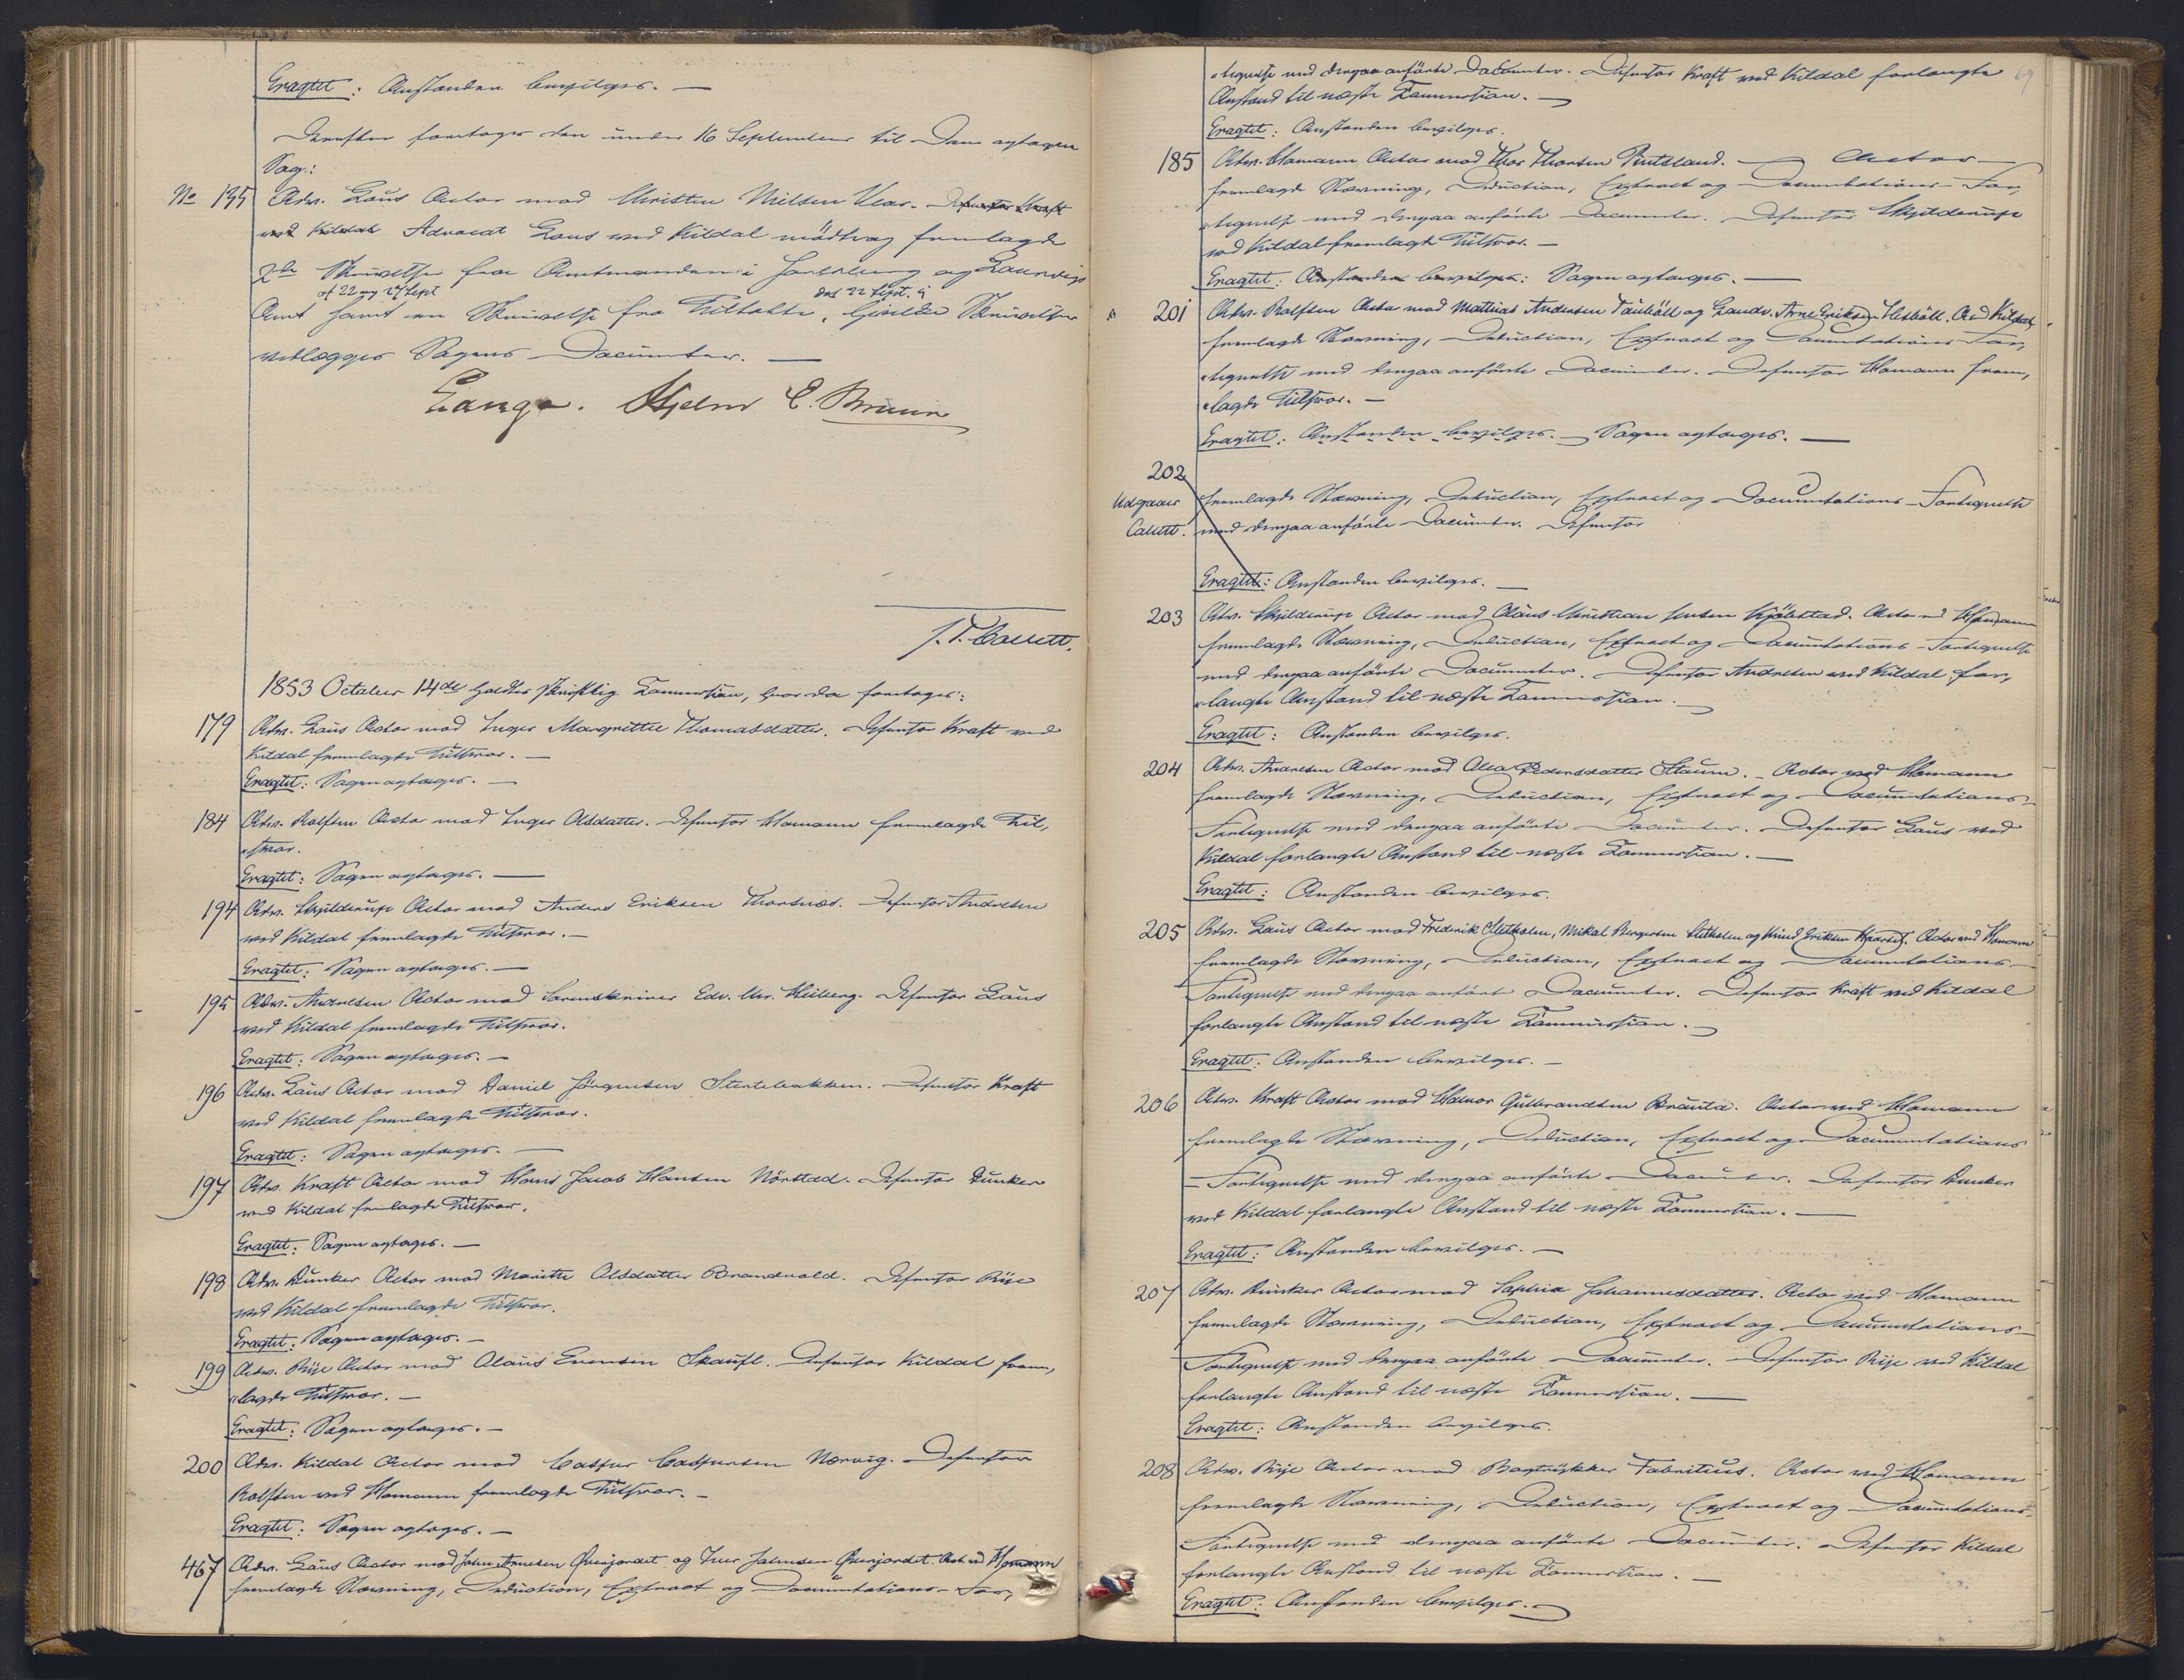 Eragtet: Anstanden bevilges. —
Derefter foretoges den under 16 September til Dom optagen
Sag:
No 135 Adv. Gaus Actor mod Christen Nielsen Klar. Defensor Kraft
ved Kildal Advocat Gaus ved Kildal mödtes og fremlagde
2de Skrivelser fra Amtmanden i Jarlsberg og Laurvigs
af 22 og 27 Sept dat 22 Sept. i
Amt samt en Skrivelse fra Tiltalte, hvilke Skrivelser
vedlægges Sagens Documenter. —
Lange. Hjelm E. Bruun
J. T. Cavett.
1853 October 14de holdtes skriftlig Commission, hvor da foretoges:
179 Adv. Gaus Actor mod Inger Margrethe Thomasdatter. Defensor Kraft ved
Kildal fremlagde Tilsvar. —
Eragtet: Sagen optages. —
184 Adv. Rolfsen Actor mod Inger Olsdatter. Defensor Homann fremlagde Til,
"svar.
Eragtet: Sagen optages. —
194 Adv. Skjelderup Actor mod Anders Eriksen Thorsnæs. Defensor Andresen
ved Kildal fremlagde Tilsvar. —
Eragtet: Sagen optages. —
195 Adv. Andresen Actor mod Sorenskriver Edv. Chr. Heiberg. Defensor Gaus
ved Kildal fremlagde Tilsvar.
Eragtet: Sagen optages. —
196 Adv. Gaus Actor mod Daniel Jörgensen Stertebakken. Defensor Kraft
ved Kildal fremlagde Tilsvar.
Eragtet: Sagen optages. —
197 Adv. Kraft Actor mod Hans Jacob Hansen Nörstad. Defensor Dunker
ved Kildal fremlagde Tilsvar.
Eragtet: Sagen optages. —
198 Adv. Dunker Actor mod Marithe Olsdatter Brandvold. Defensor Rije
ved Kildal fremlagde Tilsvar.
Eragtet: Sagen optages. —
199 Adv. Rije Actor mod Olaus Evensen Skaufl. Defensor Kildal frem,
"lagde Tilsvar. —
Eragtet: Sagen optages. —
200 Adv. Kildal Actor mod Casper Caspersen Norvig. Defensor
Rolfsen ved Homann fremlagde Tilsvar. —
Eragtet: Sagen optages. —
467 Adv. Gaus Actor mod John Arnesen Qvenjordet og Iver Johnsen Qvenjordet. Act. ved Homann
fremlagde Stævning, Deduction, Extract og Documentations-For,
69
"tegnelse med derpaa anförte Documenter. Defensor Kraft ved Kildal forlangte
Anstand til næste Commission. —
Eragtet: Anstanden bevilges.
185 Adv. Homann Actor mod Thor Thorsen Rutsland. — Actor
fremlagde Stævning, Deduction, Extract og Documentations-For,
"tegnelse med derpaa anförte Documenter. Defensor Skjelderup
ved Kildal fremlagde Tilsvar. —
Eragtet: Anstanden bevilges: Sagen optages. —
201 Adv. Rolfsen Actor mod Mathias Andersen Fauhöll og Lands. Arne Eriksen Hesböll. A. ved Kildal
fremlagde Stævning, Deduction, Extract og Documentations-For,
"tegnelse med derpaa anförte Documenter. Defensor Homann frem,
"lagde Tilsvar. —
Eragtet: Anstanden bevilges. — Sagen optages. —
202
Udgaaer fremlagde Stævning, Deduction, Extract og Documentations-Fortegnelse
Cavett. med derpaa anförte Documenter. Defensor
Eragtet: Anstanden bevilges. —
203 Adv. Skjelderup Actor mod Olaus Christian Jensen Kjölstad. Actor ved Homann
fremlagde Stævning, Deduction, Extract og Documentations-Fortegnelse
med derpaa anförte Documenter. Defensor Andresen ved Kildal for,
"langte Anstand til næste Commission. —
Eragtet: Anstanden bevilges.
204 Adv. Andresen Actor mod Olea Pedersdatter Staum. — Actor ved Homann
fremlagde Stævning, Deduction, Extract og Documentations-
Fortegnelse med derpaa anförte Documenter. Defensor Gaus ved
Kildal forlangte Anstand til næste Commission. —
Eragtet: Anstanden bevilges.
205 Adv. Gaus Actor mod Frederik Sletholen, Mikal Bergersen Sletholen og Knud Eriksen. Actor ved Homann
fremlagde Stævning, Deduction, Extract og Documentations-
Fortegnelse med derpaa anförte Documenter. Defensor Kraft ved Kildal
forlangte Anstand til næste Commission. —
Eragtet: Anstanden bevilges. —
206 Adv. Kraft Actor mod Halvor Gulbrandsen Brauta. Actor ved Homann
fremlagde Stævning, Deduction, Extract og Documentations
-Fortegnelse med derpaa anförte Documenter. Defensor Dunker
ved Kildal forlangte Anstand til næste Commission. —
Eragtet: Anstanden bevilges. —
207 Adv. Dunker Actor mod Sophia Johannesdatter. Actor ved Homann
fremlagde Stævning, Deduction, Extract og Documentations-
Fortegnelse med derpaa anförte Documenter. Defensor Rije ved Kildal
forlangte Anstand til næste Commission. —
Eragtet: Anstanden bevilges.
208 Adv. Rije Actor mod Bogtrykker Fabritius. Actor ved Homann
fremlagde Stævning, Deduction, Extract og Documentations-
Fortegnelse med derpaa anförte Documenter. Defensor Kildal
forlangte Anstand til næste Commission. —
Eragtet: Anstanden bevilges. —